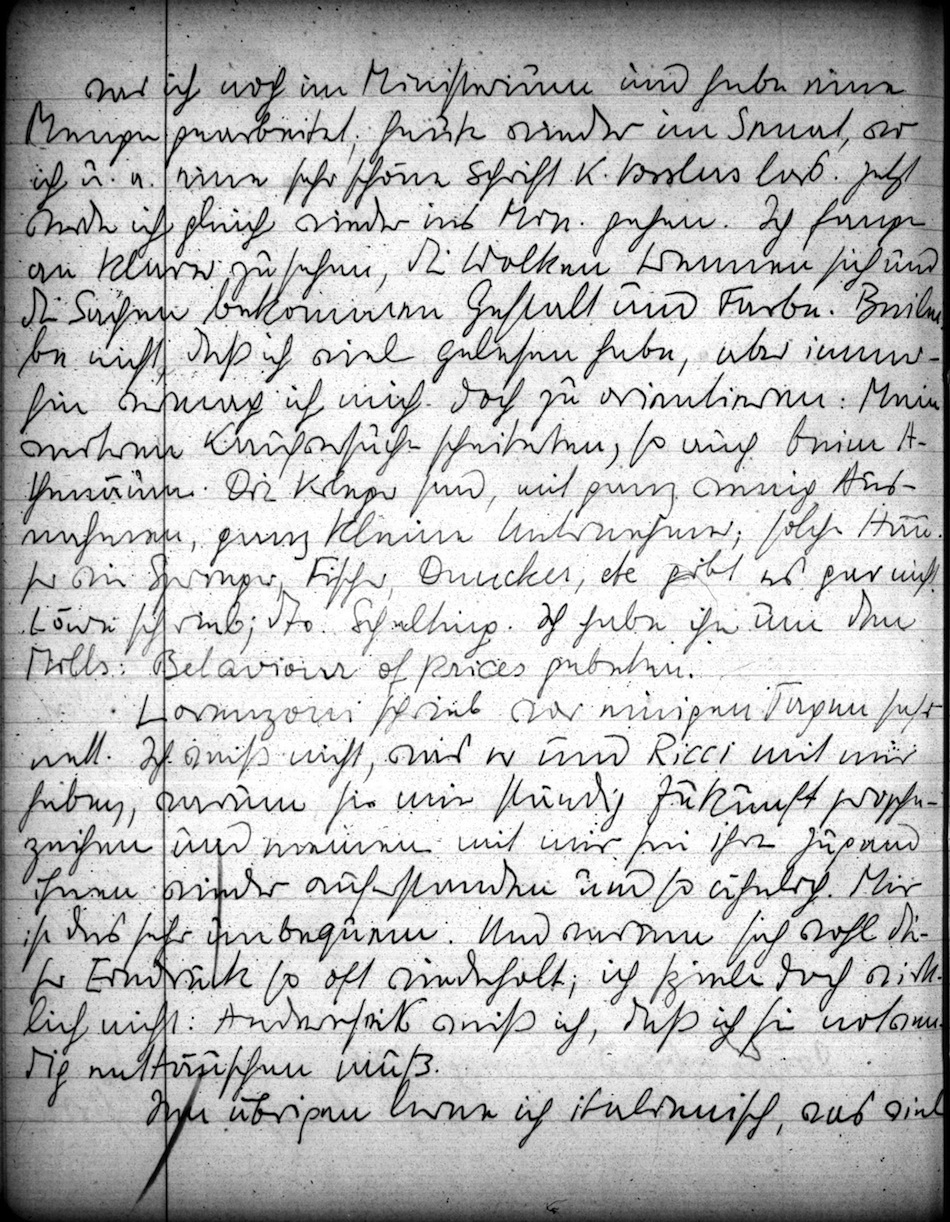 war ich noch im Ministerium und habe eine
Menge gearbeitet, heute wieder im Senat, wo
ich u. a. eine sehr schöne Schrift K. Vosslers las. Jetzt
werde ich gleich wieder ins Min. gehen. Ich fange
an klarer zu sehen, die Wolken trennen sich und
die Sachen bekommen Gestalt und Farbe. Beilei
be nicht, daß ich viel gelesen habe, aber immer-
hin vermag ich mich doch zu orientieren. Meine
weiteren Kaufversuche scheiterten, so auch beim A-
thenäum. Die Verleger sind, mit ganz wenig Aus-
nahmen, ganz kleine Unternehmer; solche Häu-
ser wie Springer, Fischer, Duncker, etc gibt es gar nicht.
Löwe schrieb; dto. Schelting. Ich habe ihn um den
Mills: Behaviour of prices gebeten.
Lorenzoni schrieb vor einigen Tagen sehr
nett. Ich weiß nicht, was er und Ricci mit mir
haben, warum sie mir ständig Zukunft prophe-
zeihen und meinen mit mir sei ihre Jugend
ihnen wieder auferstanden und so ähnlich. Mir
ist das sehr unbequem. Und warum sich wohl die-
ser Eindruck so oft wiederholt; ich spiele doch wirk-
lich nicht. Anderseits weiß ich, daß ich sie notwen
dig enttäuschen muß.
Im übrigen lerne ich italienisch, was viel